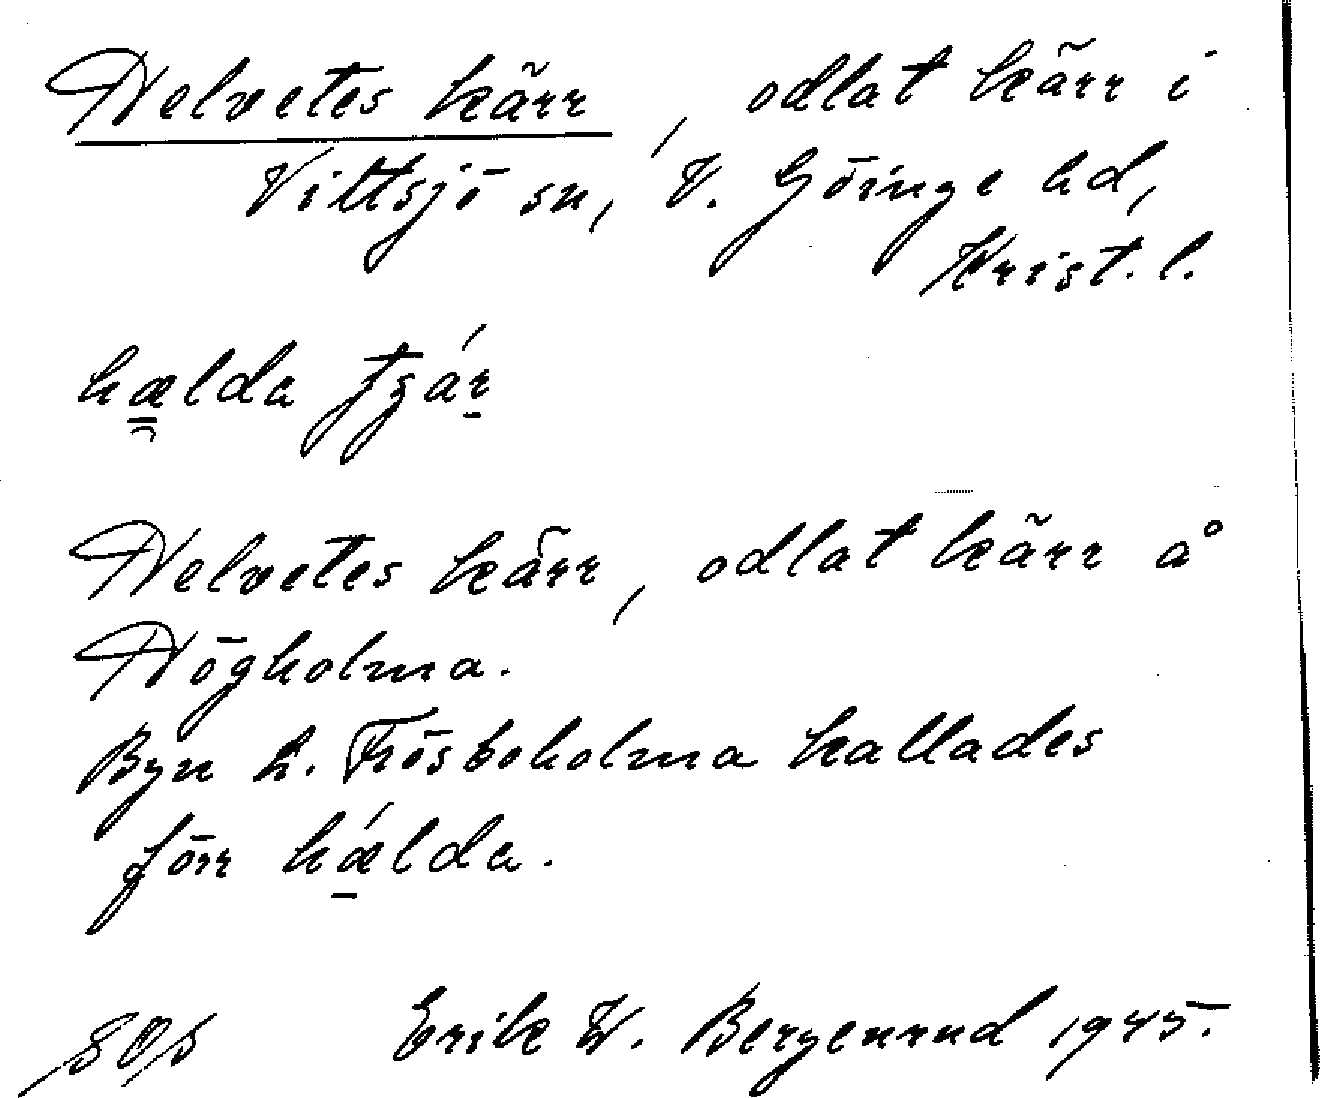 Helvetes kärr, odlat kärr i
Vittsjö sn, V. Göinge hd,
Krist. l.
hælda
Helvetes kärr, odlat kärr å
Högholma.
Byn L. Frösboholma kallades
förr hǽlda.
Erik W. Bergenrud 1945.